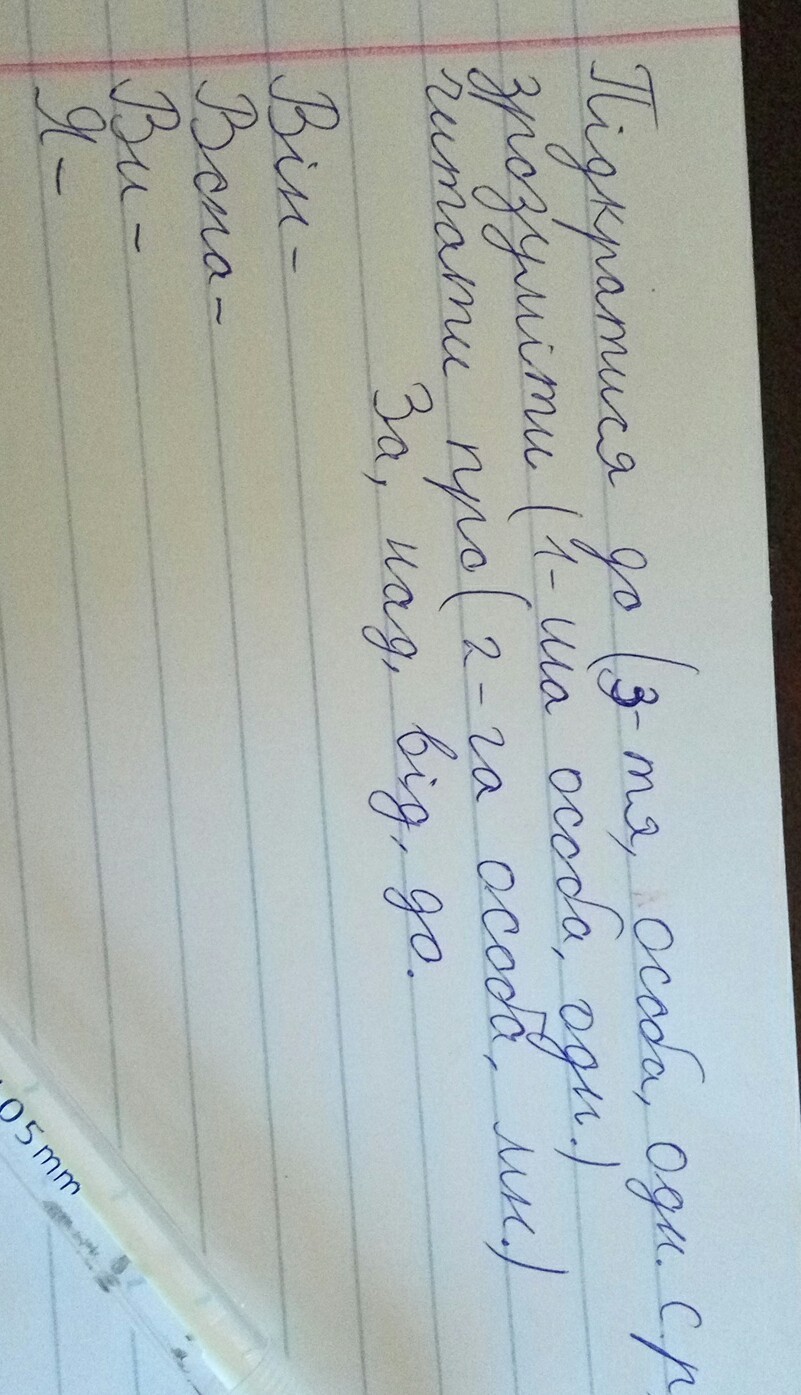 Підкратися до (3-тя, особа, одн. с р
зрозуміти (1-ша особа, одн.)
читати про (2-га особа, мн.)
За, над, від, до.
Він -
Вона -
Ви -
Я -
05mm